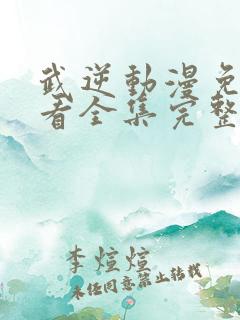 武逆動漫免
看全集完整
李煊煊
未经同意禁止转载